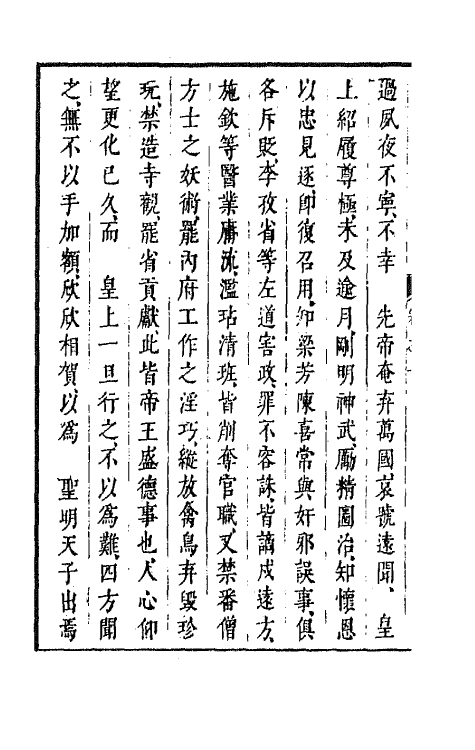 過夙夜不寧不幸　先帝奄弃萬國哀號遠聞　皇
上紹履尊極未及逾月剛明神武勵精圖治知懷恩
以忠見逐即復召用知梁芳陳喜常與奸邪誤事俱
各斥貶李孜省等左道害政罪不容誅皆謫戍遠方
施欽等醫業庸流濫玷清班皆削奪官職又禁番僧
方士之妖術罷內府工作之淫巧縱放禽鳥弃毀珍
玩禁造寺觀罷省貢獻此皆帝王盛德事也人心仰
望更化已久而　皇上一旦行之不以為難四方聞
之無不以手加額欣欣相賀以為　聖明天子出焉